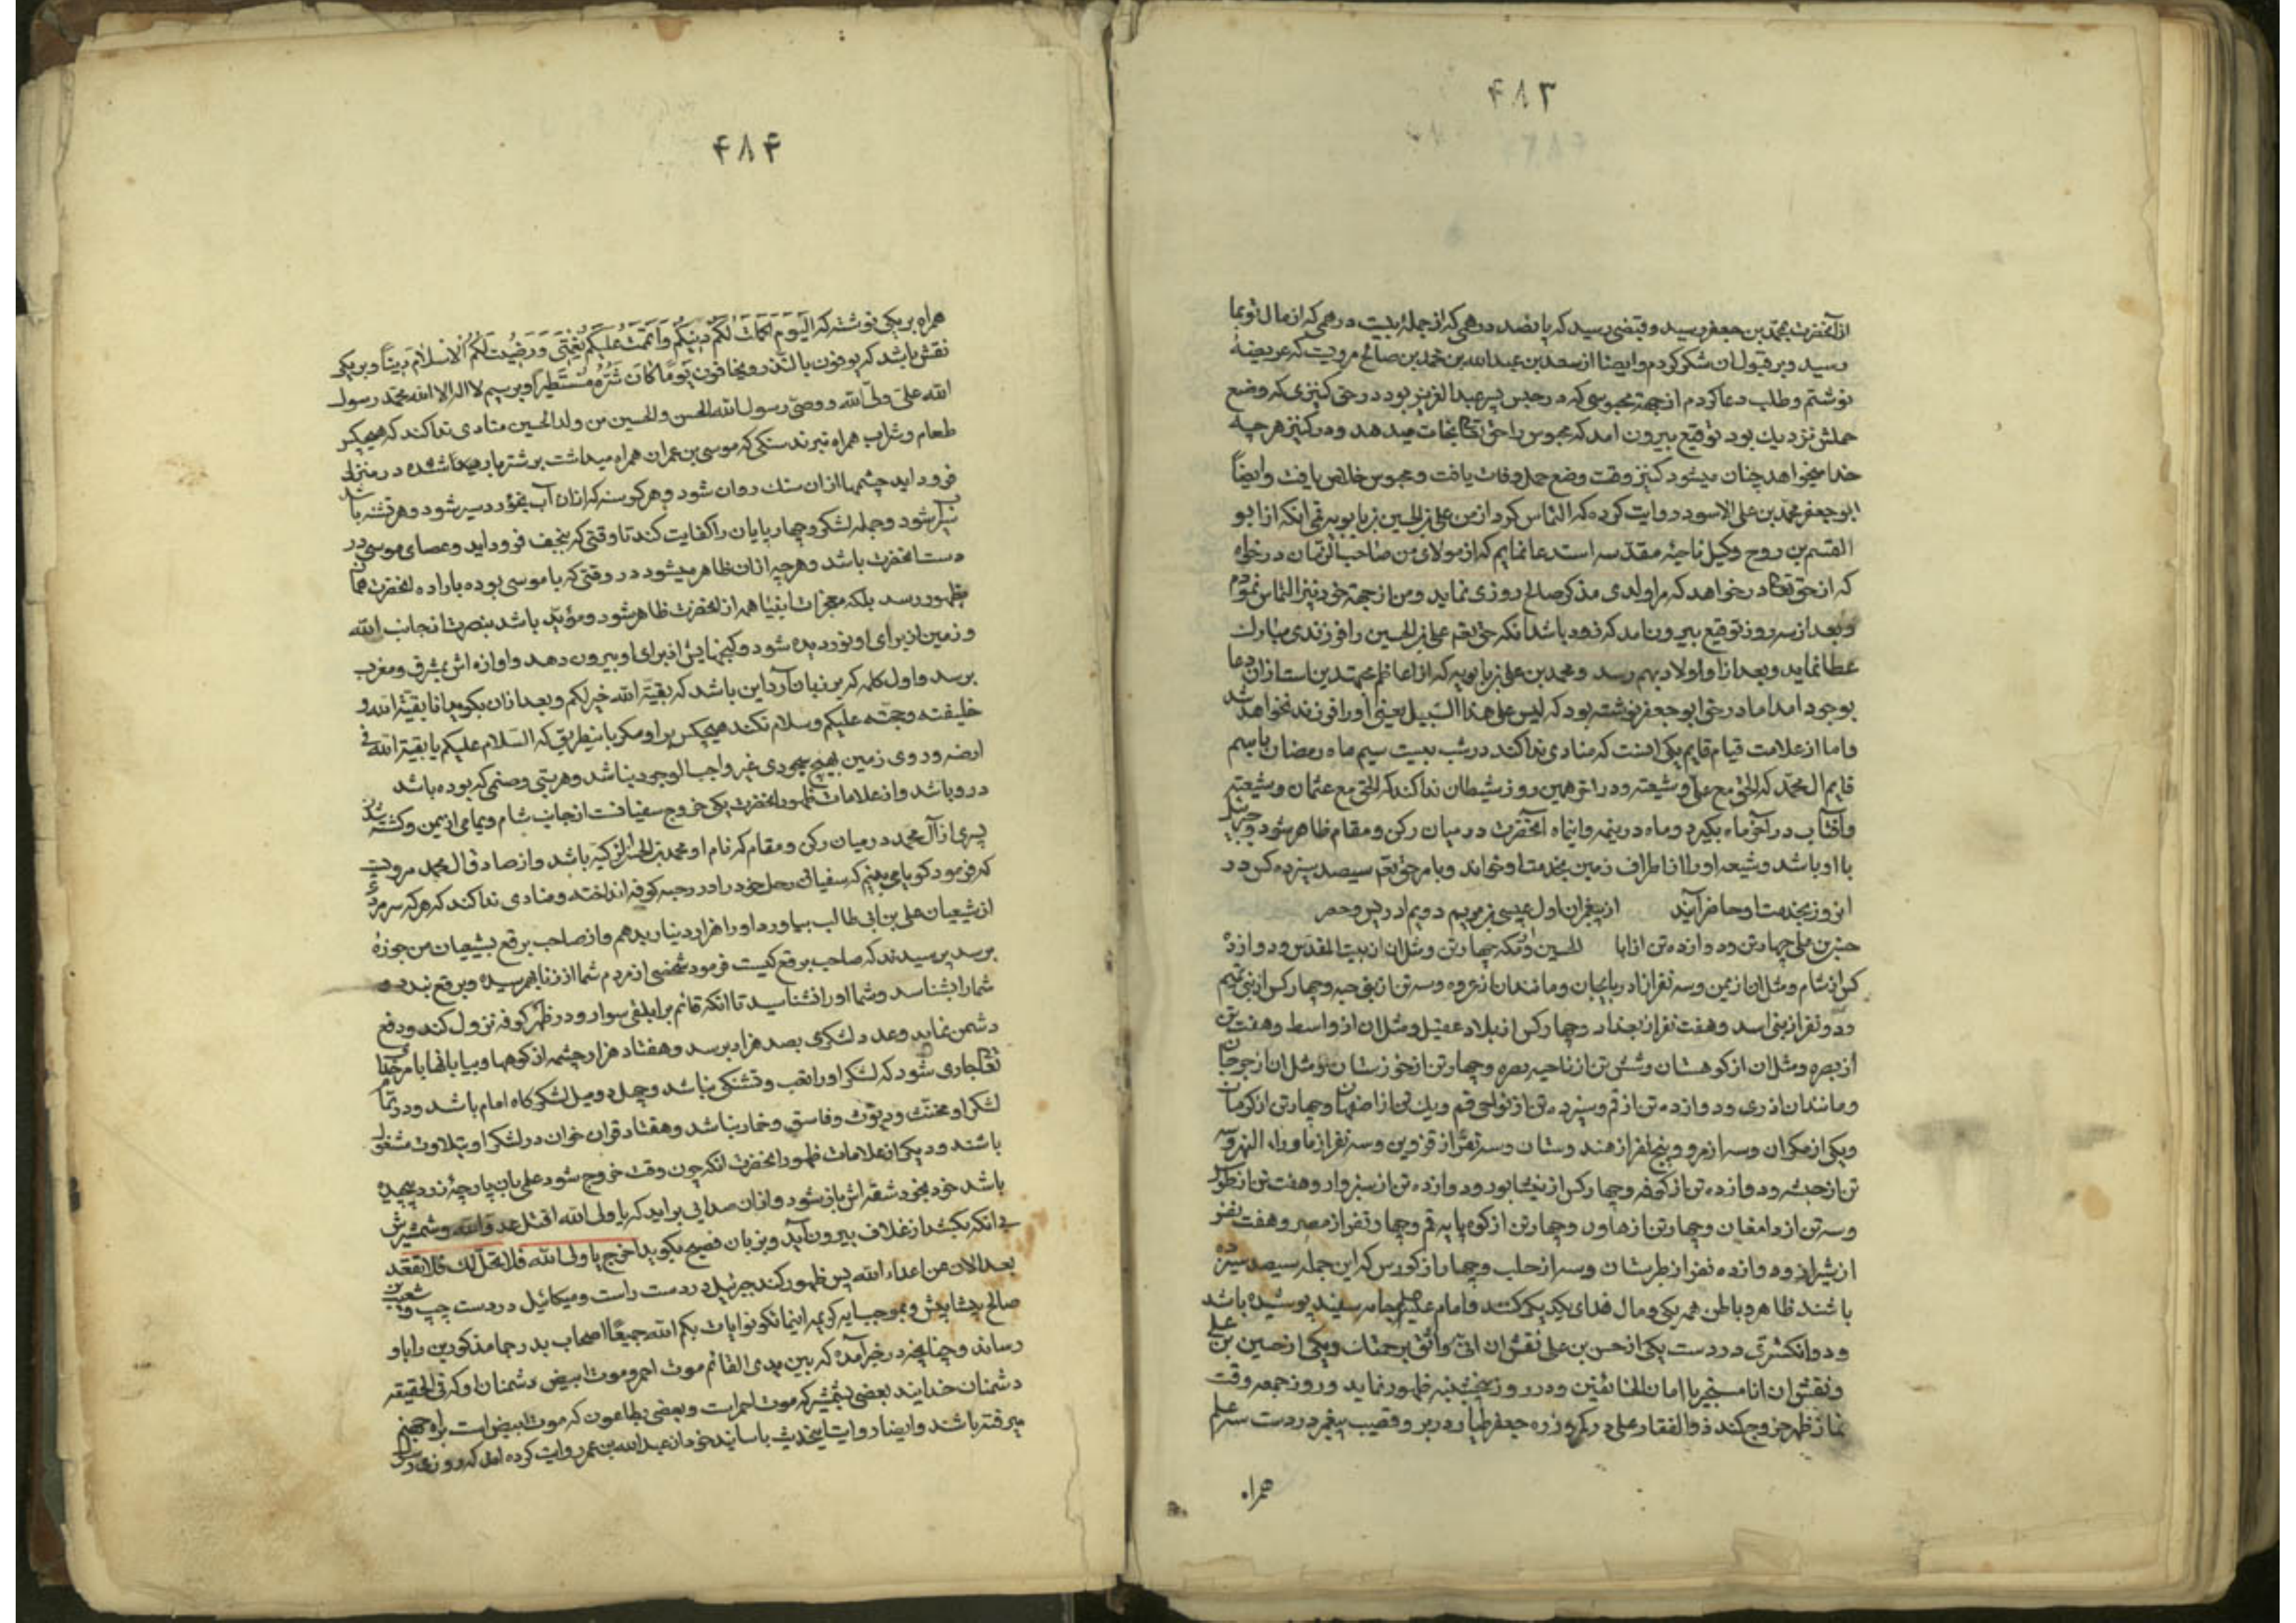 ۴۸۳
از آنحضرت بمحمد بن جعفر رسید و قبضی رسید که پانصد درهمی که از جمله بیست درهمی که از مال تو بما
رسید و بر قبول آن شکر کردم و ایضا از سعد بن عبدالله بن محمد بن صالح مرویست که عریضهٔ
نوشتم و طلب دعا کردم از جهة محبوسی که در حبس پسر عبدالعزیز بود و در حق کنیزی که وضع
حملش نزدیك بود توقیع بیرون امد که محبوس را حق تعالی نجات میدهد و در کنیز هر چه
خدا میخواهد چنان میشود کنیز وقت وضع حمل وفات یافت و محبوس خلاص یافت و ایضاً
ابو جعفر محمد بن علی الاسود روایت کرده که التماس کرد از من علی بن الحسین بن بابویه قمی انکه از ابو
القسم بن روح وکیل ناحیه مقدسه استدعا نمایم که از مولای من صاحب الزمان درخواه
که از حق تعالی درخواهد که مرا ولدی مذکر صالح روزی نماید و من از جهة خود نیز التماس نمودم
و بعد از سه روز توقیع بیرون امد که زود باشد انکه حق تعم علی بن الحسین را فرزندی مبارك
عطا نماید و بعد از او اولاد بهم رسد و محمد بن علی بن بابویه که از اعاظم مجتهدین است از ان دعا
بوجود امد اما در حق ابو جعفر نوشته بود که لیس علی هذا السبیل یعنی او را فرزند نخواهد شد
و اما از علامت قیام قایم یکی انست که منادی ندا کند در شب بیست سیم ماه رمضان باسم
قایم ال محمد که الحق مع علی و شیعته و در اخر همین روز شیطان ندا کند که الحق مع عثمان و شیعته
و آفتاب در آخر ماه بگیرد و ماه در نیمه و اینماه آنحضرت در میان رکن و مقام ظاهر شود و جبرئیل
با او باشد و شیعه او را از اطراف زمین بخدمت او خواند و بامر حق تعم سیصد سیزده کس در
انروز بخدمت او حاضر آیند از پیغمبران اول عیسی بن مریم دویم ادریس و خضر
بن علی چهار تن و دوازده تن از ابا و مکه چهار تن و مثل ان از بیت المقدس و دوازده
کس از شام و مثل ان از یمن و سه نفر از ادربایجان و مانند ان از و سه تن از بنی حیه و چهار کس از بنی تمیم
و دو نفر از بنی اسد و هفت نفر از بغداد و چهار کس از بلاد عقیل و مثل ان از واسط و هفت تن
از بصره و مثل ان از کوهستان و شش تن از ناحیه بصره و چهار تن از خوزستان و مثل ان از جرجان
و مانند ان از ری و دوازده تن از قم و سیزده تن از نواحی قم و یك تن از اصفهان و چهار تن از کرمان
و یکی از مکران و سه از مرو و پنج نفر از هندوستان و سه نفر از قزوین و سه نفر از ماوراء النهر و نه
تن از حبشه و دوازده تن از کوفه و چهار کس از نیشابور و دوازده تن از سبزوار و هفت تن از طوس
و سه تن از دامغان و چهار تن از و چهار تن از کوه پایه قم و چهار نفر از مصر و هفت نفر
از شیراز و دوازده نفر از طبرستان و سه از حلب و چهار از که این جمله سیصد سیزده
باشند ظاهر و باطن همه یکی و مال فدای یکدیگر کنند و امام علیه السلم جامه سفید پوشیده باشد
و دو انگشتری در دست یکی از حسن بن علی نقش ان انی واثق برحمتك و یکی از حسین بن علی
و نقش ان انا مستجیر یا امان الخائفین و در روز پنجشنبه ظهور نماید و روز جمعه وقت
نماز ظهر خروج کند ذوالفقار علی در کمر و زره جعفر طیار در بر و قضیب پیغمبر در دست
همراه
۴۸۴
همراه بر یکی نوشته که الیَومَ اَکمَلتُ لَکُم دینَکُم وَاَتمَمتُ عَلَیکُم نِعمَتی وَرَضیتُ لَکُمُ الاِسلامَ دیناً و بر یکی
نقش باشد که یوفون بالنذر و یخافون یَوماً کانَ شَرُّهُ مُستَطیراً و بر سیم لا اله الا الله محمد رسول
الله علی ولی الله و وصی رسول الله الحسن والحسین من ولد الحسین منادی ندا کند که هیچکس
طعام و شراب همراه نبرند سنکی که موسی بن عمران همراه میداشت بر شتر بار شده در منزل
فرود اید چشمها از ان سنك روان شود و هر کرسنه که از ان آب بخورد سیر شود و هر تشنه باشد
سیراب شود و جمله لشکر و چهار پایان را کفایت کند تا وقتی که بنجف فرود اید و عصای موسی در
دست انحضرت باشد و هر چه از ان ظاهر میشود در وقتی که با موسی بوده باراده انحضرت همان
بظهور رسد بلکه معجزات انبیا همه از انحضرت ظاهر شود و مؤید باشد بنصرت از جانب الله
و زمین از برای او نوردیده شود و کنجهایش از برای او بیرون دهد و اوازه اش بمشرق و مغرب
برسد و اول کلمه که بر زبان آرد این باشد که بقیة الله خیر لکم و بعد از ان بکوید انا بقیة الله و
خلیفته و حجته علیکم و سلام نکند هیچکس بر او مکر باینطریق که السلام علیکم یا بقیة الله فی
ارضه و روی زمین هیچ معبودی غیر واجب الوجود نباشد و هر بتی و صنمی که بوده باشد
در و باشد و از علامات ظهور انحضرت یکی خروج سفیانست از جانب شام و یمانی از یمن و کشته شدن
پسری از آل محمد در میان رکن و مقام که نام او محمد بن الحسن الزکیة باشد و از صادق ال محمد مرویست
که فرمود کویا می بینم که سفیانی رحل خود را در رحبه کوفه انداخته و منادی ندا کند که هر که سر مردی
از شیعیان علی بن ابی طالب بیاورد او را هزار دینار بدهم و از صاحب برقع بشیعیان من
برسد پرسیدند که صاحب برقع کیست فرمود شخصی از مردم شما از زنا بهمرسیده و برقع بندد و
شما را بشناسد و شما او را نشناسید تا انکه قائم بر ابلقی سوار و در ظهر کوفه نزول کند و دفع
دشمن نماید و عدد لشکرش بصد هزار برسد و هفتاد هزار چشمه از کوهها و بیابانها بامر حق
تعالی جاری شود که لشکر او را تعب و تشنکی نباشد و چهل دو میل لشکرکاه امام باشد و در تمام
لشکر او مخنث و دیوث و فاسق و خمار نباشد و هفتاد قران خوان در لشکر او بتلاوت مشغول
باشند و دیکر از علامات ظهور انحضرت انکه چون وقت خروج شود علمی بان پارچه زرد پیچیده
باشد خود بخود شقه اش باز شود و از ان صدایی براید که یا ولی الله اقتل عدو الله و شمشیرش
بی انکه بکشد از غلاف بیرون آید و بزبان فصیح بکوید اخرج یا ولی الله فلا یحل لك فلا تقعد
بعد الان من اعداء الله پس ظهور کند جبرئیل در دست راست و میکائیل در دست چپ و شعیب بن
صالح پیشاپیش و بموجب ایه کریمه اینما تکونوا یات بکم الله جمیعاً اصحاب بدر رجما مذکورین را با و
رساند و چنانچه در خبر آمده که بین یدی القائم موت احمر و موت ابیض دشمنان او که فی الحقیقه
دشمنان خدایند بعضی بشمشیر که موت احمر است و بعضی بطاعون که موت ابیض است براه جهنم
میرفته باشند و ایضا روایت اینحدیث باسانید خود از عبدالله بن عمر روایت کرده اند که روزی رسول